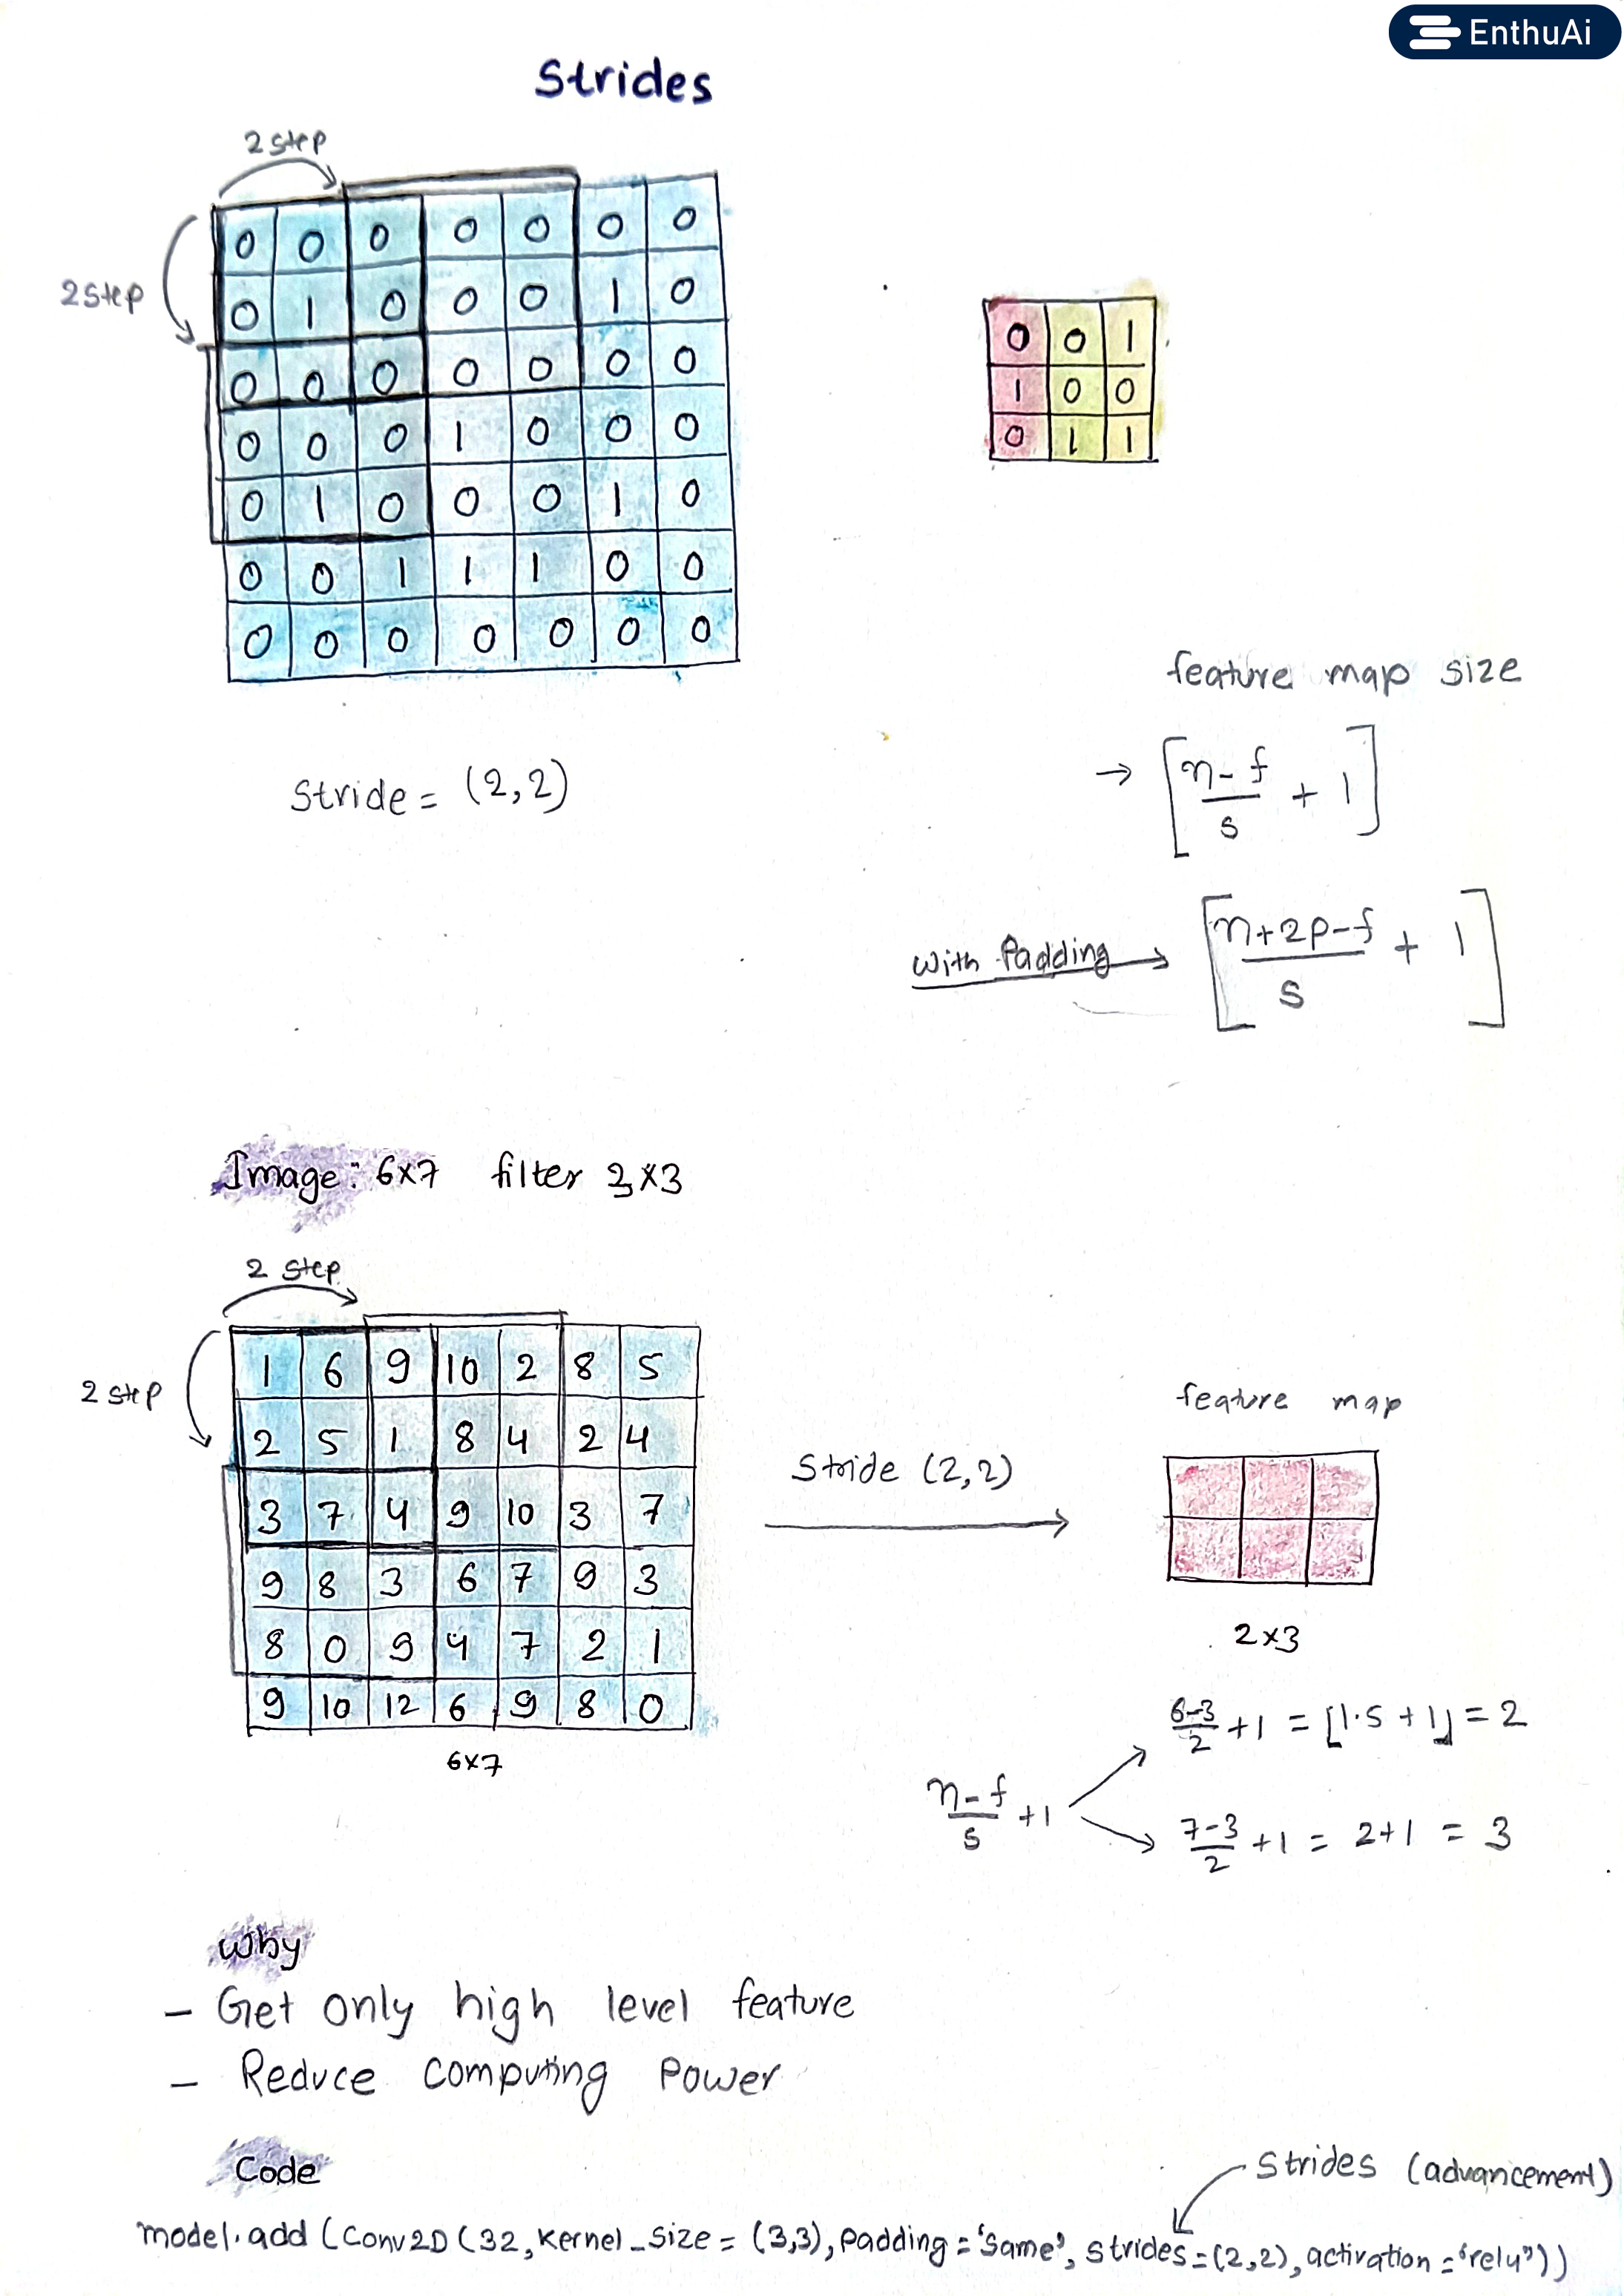 EnthuAi
Strides
2 step
2 step
0 0 0 0 0 0 0
0 1 0 0 0 1 0
0 0 0 0 0 0 0
0 0 0 1 0 0 0
0 1 0 0 0 1 0
0 0 1 1 1 0 0
0 0 0 0 0 0 0
0 0 1
1 0 0
0 1 1
Stride = (2,2)
feature map size
→ [n-f/s + 1]
With Padding → [n+2p-f/s + 1]
Image: 6×7 filter 3×3
2 step
2 step
1 6 9 10 2 8 5
2 5 1 8 4 2 4
3 7 4 9 10 3 7
9 8 3 6 7 9 3
8 0 9 4 7 2 1
9 10 12 6 9 8 0
6×7
Stride (2,2)
feature map
2×3
n-f/s +1
6-3/2 +1 = ⌊1.5 + 1⌋ = 2
7-3/2 +1 = 2+1 = 3
Why
- Get only high level feature
- Reduce Computing Power
Code
Strides (advancement)
model.add (Conv2D (32, Kernel_size = (3,3), padding = 'Same', strides = (2,2), activation = 'relu'))